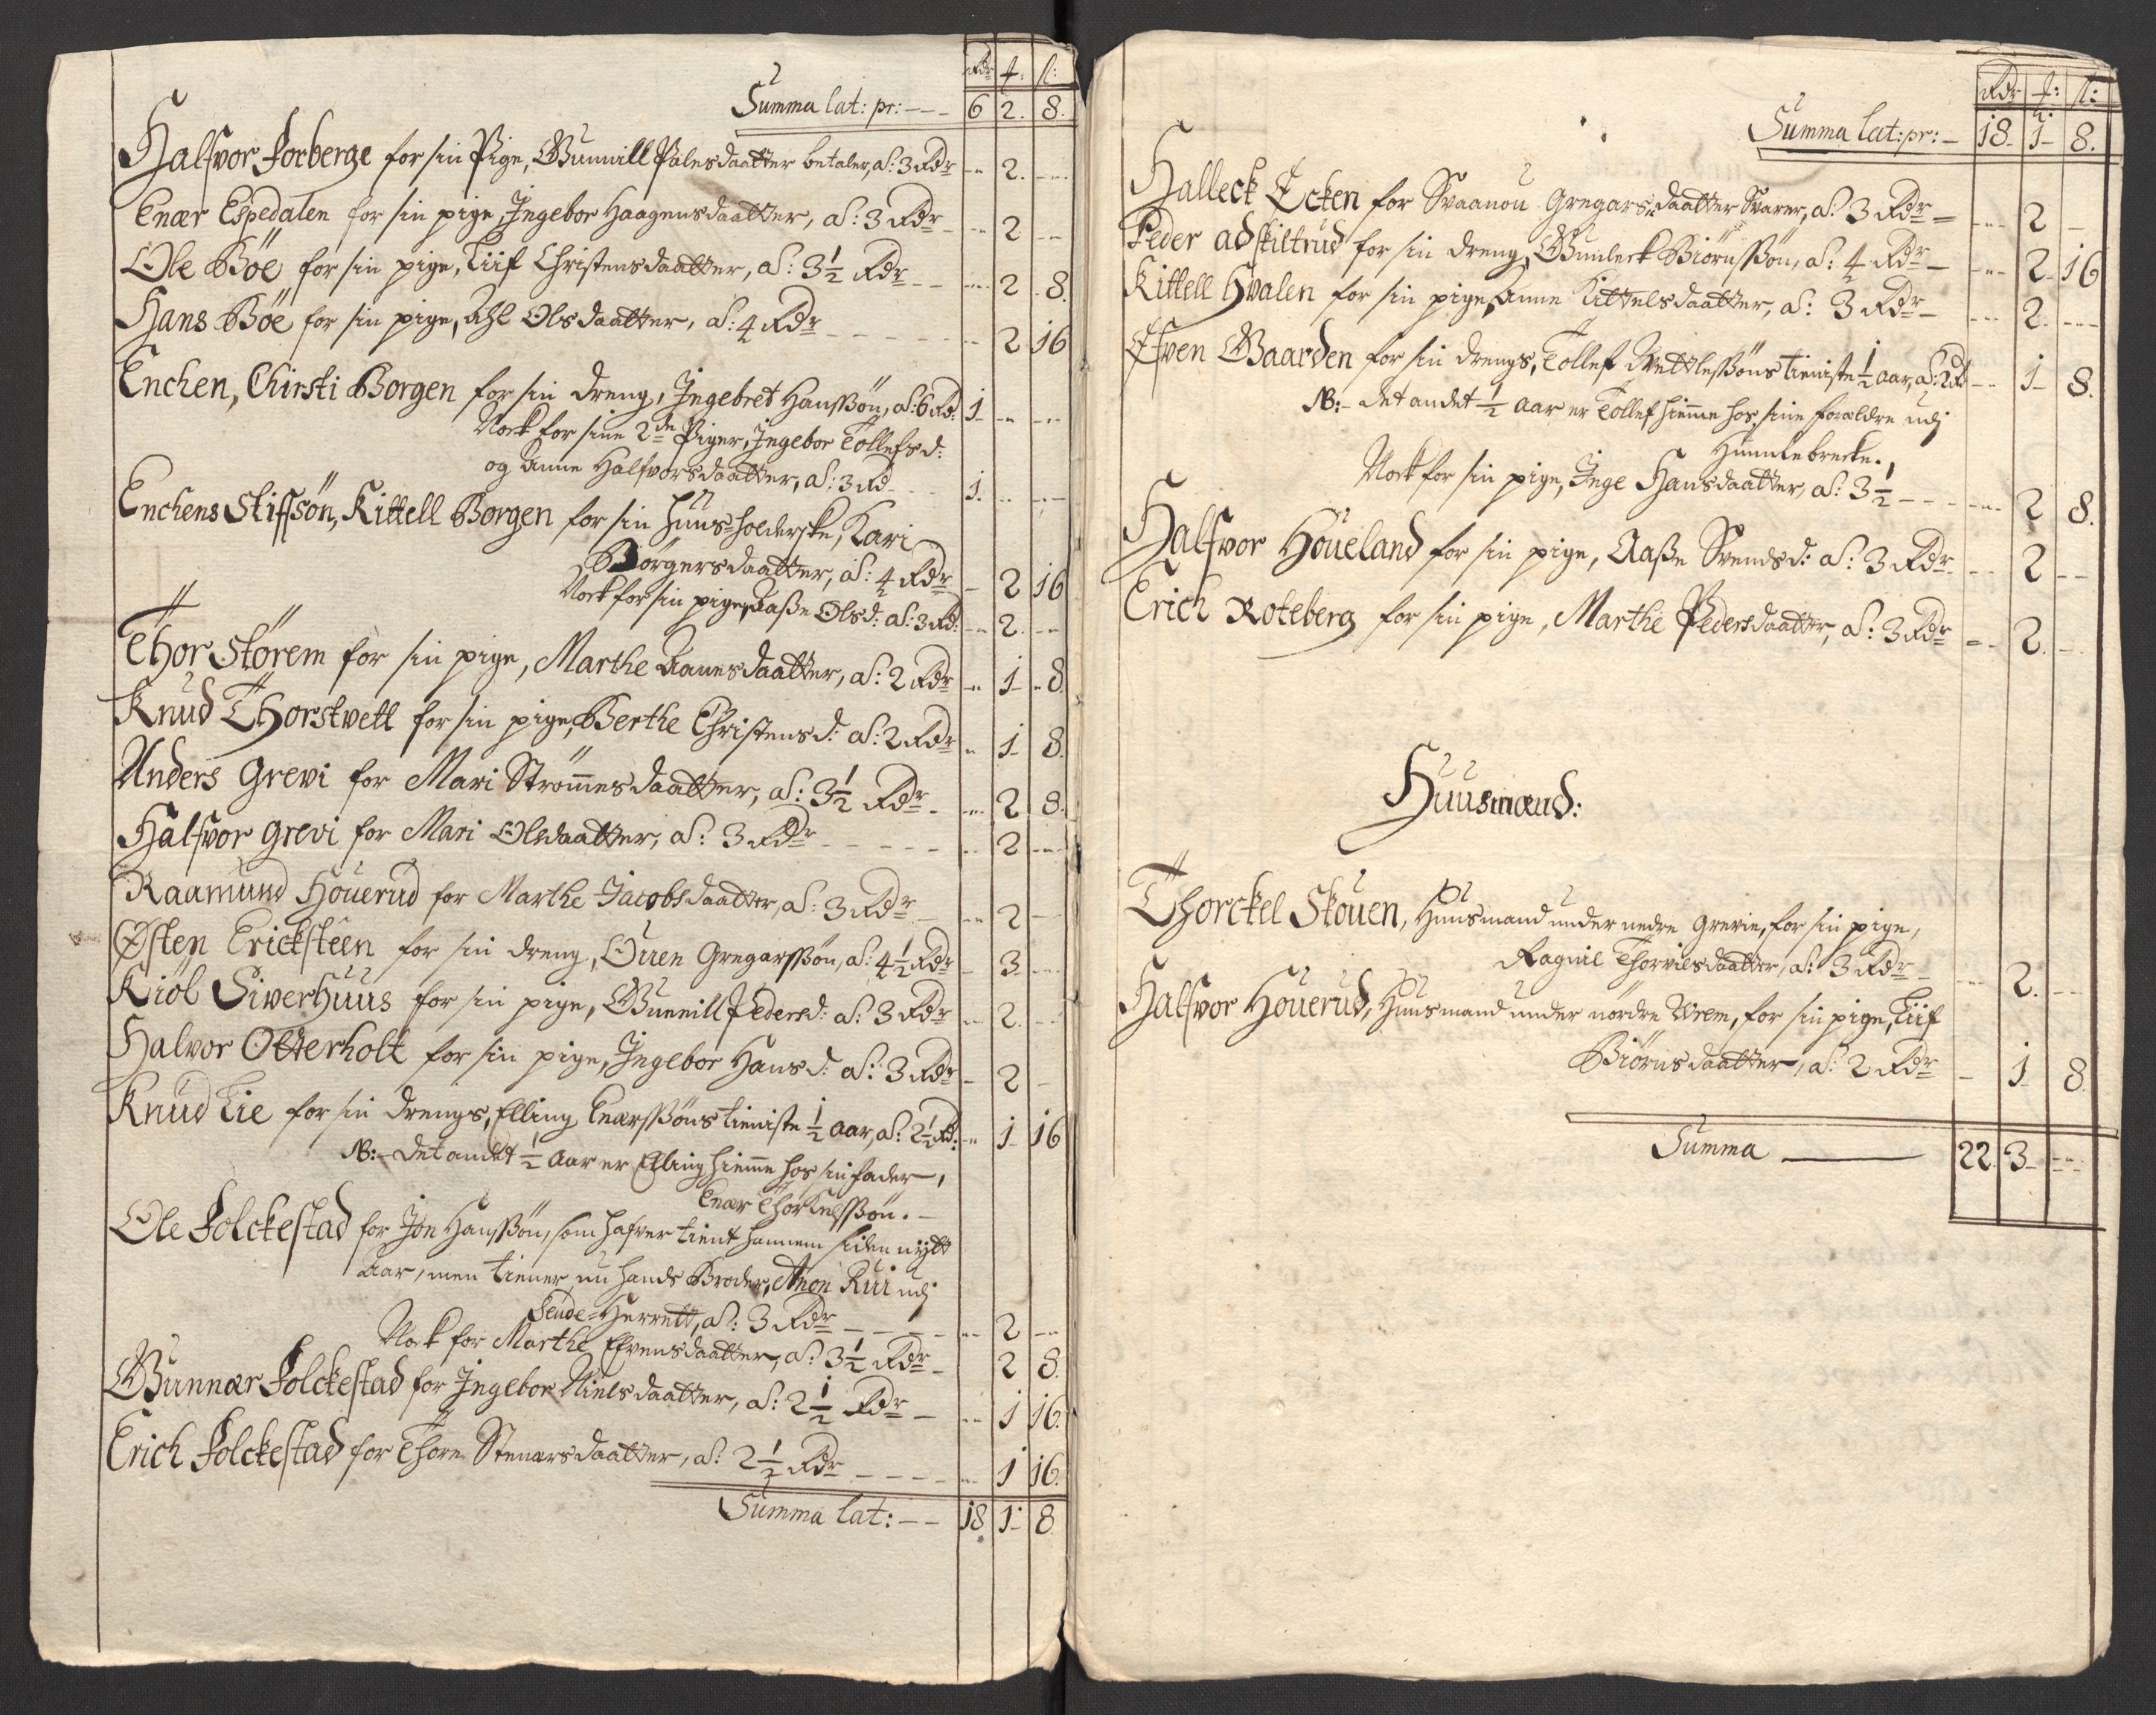 Rdr ſ: s:
Summa lat: pr: --- 6 2. 8.
Halfvor Forberge for sin Pige, Gunnill Palesdaatter betaler, af: 3 Rdr -- 2. ---
Enær Espedalen for sin pige, Ingebor Haagensdaatter, af: 3 Rdr -- 2 --
Ole Böe for sin pige, Liif Christensdaatter, af: 3½ Rdr --- 2 8.
Hans Böe for sin pige, Olsdaatter, af: 4 Rdr -- 2 16
Enchen, Chirsti Borgen for sin dreng, Ingebret Hanssøn, af: 6 Rd: 1 -- --
Nock for sine 2de Piger, Ingebor Tollefsd:
og Anne Halfvorsdaatter, af: 3 Rd 1. -- --
Enchens Stifsön, Kittell Borgen for sin Huus-holderske, Kari
Börgersdaatter, af: 4 Rdr - 2 16
Nock for sin pige, Aaße Olsd: af: 3 Rd: -- 2. --
Thor Störem for sin pige, Marthe Aanesdaatter, af: 2 Rdr -- 1 8
Knud Thorstvett for sin pige, Berthe Christensd: af: 2 Rdr - 1 8.
Anders Grevi for Mari Strömmesdaatter, af: 3½ Rdr -- 2 8.
Halfvor Grevi for Mari Olsdaatter, af: 3 Rdr -- 2 --
Raamund Höuerud for Marthe Jacobsdaatter, af: 3 Rdr -- 2 --
Østen Ericksteen for sin dreng, Ouen Gregarssøn, af: 4½ Rdr - 3 --
Kiöl Siverhuus for sin pige, Gunnill Pedersd: af: 3 Rdr -- 2. --
Halvor Otterholt for sin pige, Ingebor Hansd: af: 3 Rdr - 2 -
Knud Lie for sin drengs, Elling Enærssöns tieniste ½ aar, af: 2½ Rd: -- 1 16
NB:- det andet ½ Aar er Elling hiemme hos sin fader,
Enær Thorkelssøn. -
Ole Folckestad for Jon Hanssøn, som hafver tient hannem siden nytt
Aar, men tiener nu hands Broder, Anon Rui udj
Seude-Herrett, af: 3 Rdr -- 2 --
Nock for Marthe Efvensdaatter, af: 3½ Rdr - 2 8
Gunnær Folckestad for Ingebor Nielsdaatter, af: 2½ Rdr -- 1 16.
Erich Folckestad for Thore Stenarsdaatter, af: 2½ Rdr -- 1 16.
Summa lat: -- 18 1 8
Rdr ſ: s:
Summa lat: pr: - 18 1 8.
Halleck Ecken for Svaanou Gregarsdaatter Svarer, af: 3 Rdr --- 2 -
Peder Adskiltrud for sin dreng, Gunleck Biörnssön, af: 4 Rdr --- 2 16
Kittell Hvalen for sin pige, Anne Kittelsdaatter, af: 3 Rdr --- 2. ---
Efven Gaarden for sin drengs, Tollef Vettlessöns tieniste ½ aar, af: 2 Rd -- 1 8.
NB:- det andet ½ Aar er Tollef hiemme hos sine foreldre udj
Hunnebrecke.
Nock for sin pige, Inge Hansdaatter, af: 3½ --- 2 8.
Halfvor Höueland for sin pige, Aaße Svendsd: af: 3 Rdr -- 2 --
Erich Roteberg for sin pige, Marthe Pedersdaatter, af: 3 Rdr -- 2. --
Huusmænd:
Thorckel Skouen, Huusmand under nedre Grevie, for sin pige,
Ragnil Thorvilsdaatter, af: 3 Rdr -- 2. --
Halfvor Höuerud, Huusmand under nördre Vrem, for sin pige, Liif
Biörnsdaatter, af: 2 Rdr - 1 8
Summa --- 22. 3 --